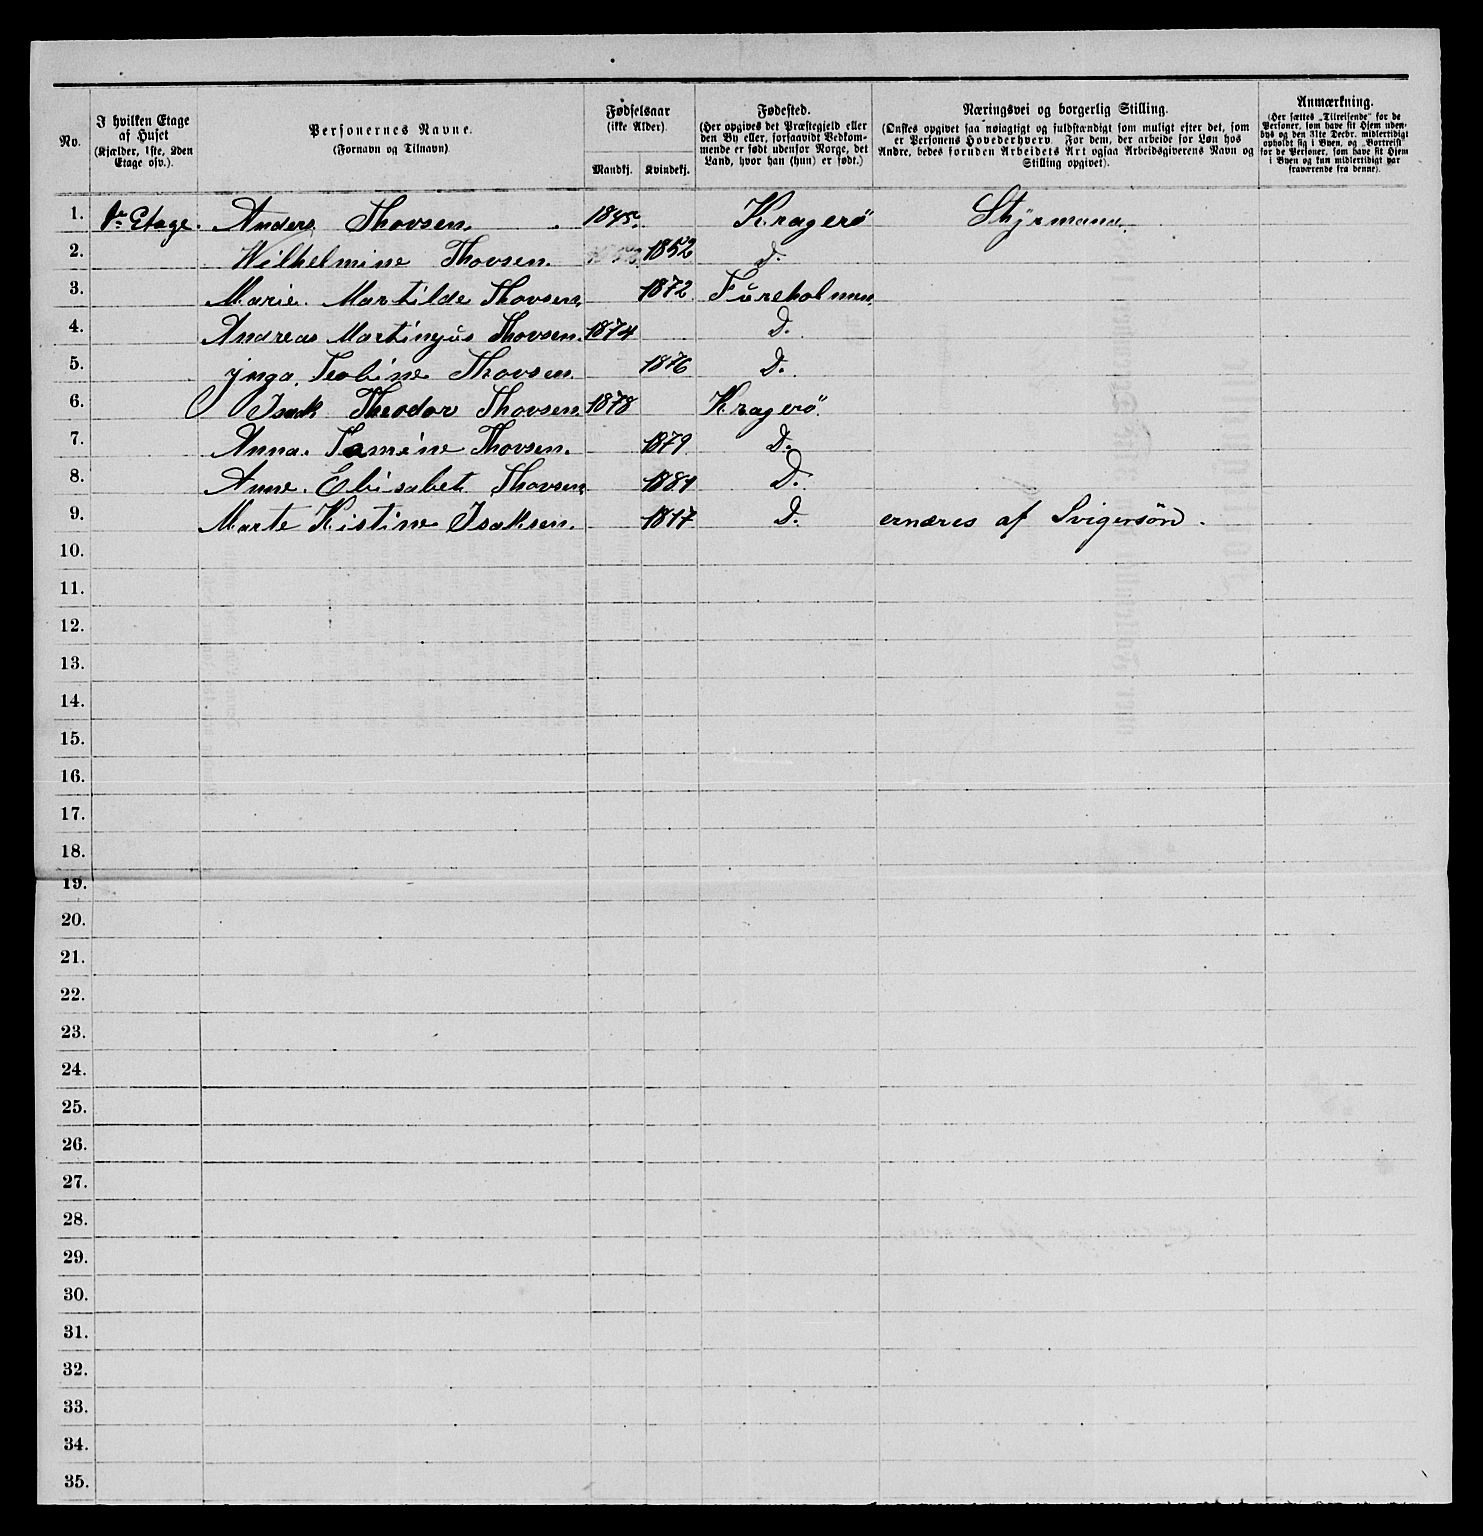 No. I hvilken Etage af Huset (Kjælder, 1ste, 2den Etage osv.). Personernes Navne. (Fornavn og Tilnavn). Fødselsaar (ikke Alder). Mandkj. Kvindekj. Fødested. (Her opgives det Præstegjeld eller den By eller, forsaavidt Vedkommende er født udenfor Norge, det Land, hvor han (hun) er født.) Næringsvei og borgerlig Stilling. (Ønskes opgivet saa nøiagtigt og fuldstændigt som muligt efter det, som er Personens Hovederhverv. For dem, der arbeide for Løn hos Andre, bedes foruden Arbeidets Art ogsaa Arbeidsgiverens Navn og Stilling opgivet). Anmærkning. (Her sættes „Tilreisende“ for de Personer, som have sit Hjem udenbys og den 31te Decbr. midlertidigt opholdt sig i Byen, og „Bortreist“ for de Personer, som have sit Hjem i Byen og kun midlertidigt var fraværende fra denne).
1. Etage. Anders Thovsen. 1845. Kragerö Styrmann.
2. Wilhelmine Thovsen. 1852 D.
3. Marie. Martilde Thovsen. 1872 Füreholmen.
4. Andreas Martinyus Thovsen. 1874 D.
5. ynga. Teoline Thovsen. 1876 D.
6. Isak Theodor Thovsen. 1878 Kragerö.
7. Anna. Tomine Thovsen. 1879 D.
8. Anne. Elisabet Thovsen. 1881 D.
9. Marte Kistine Isaksen. 1817 D. ernæres af Svigersön.
10.
11.
12.
13.
14.
15.
16.
17.
18.
19.
20.
21.
22.
23.
24.
25.
26.
27.
28.
29.
30.
31.
32.
33.
34.
35.